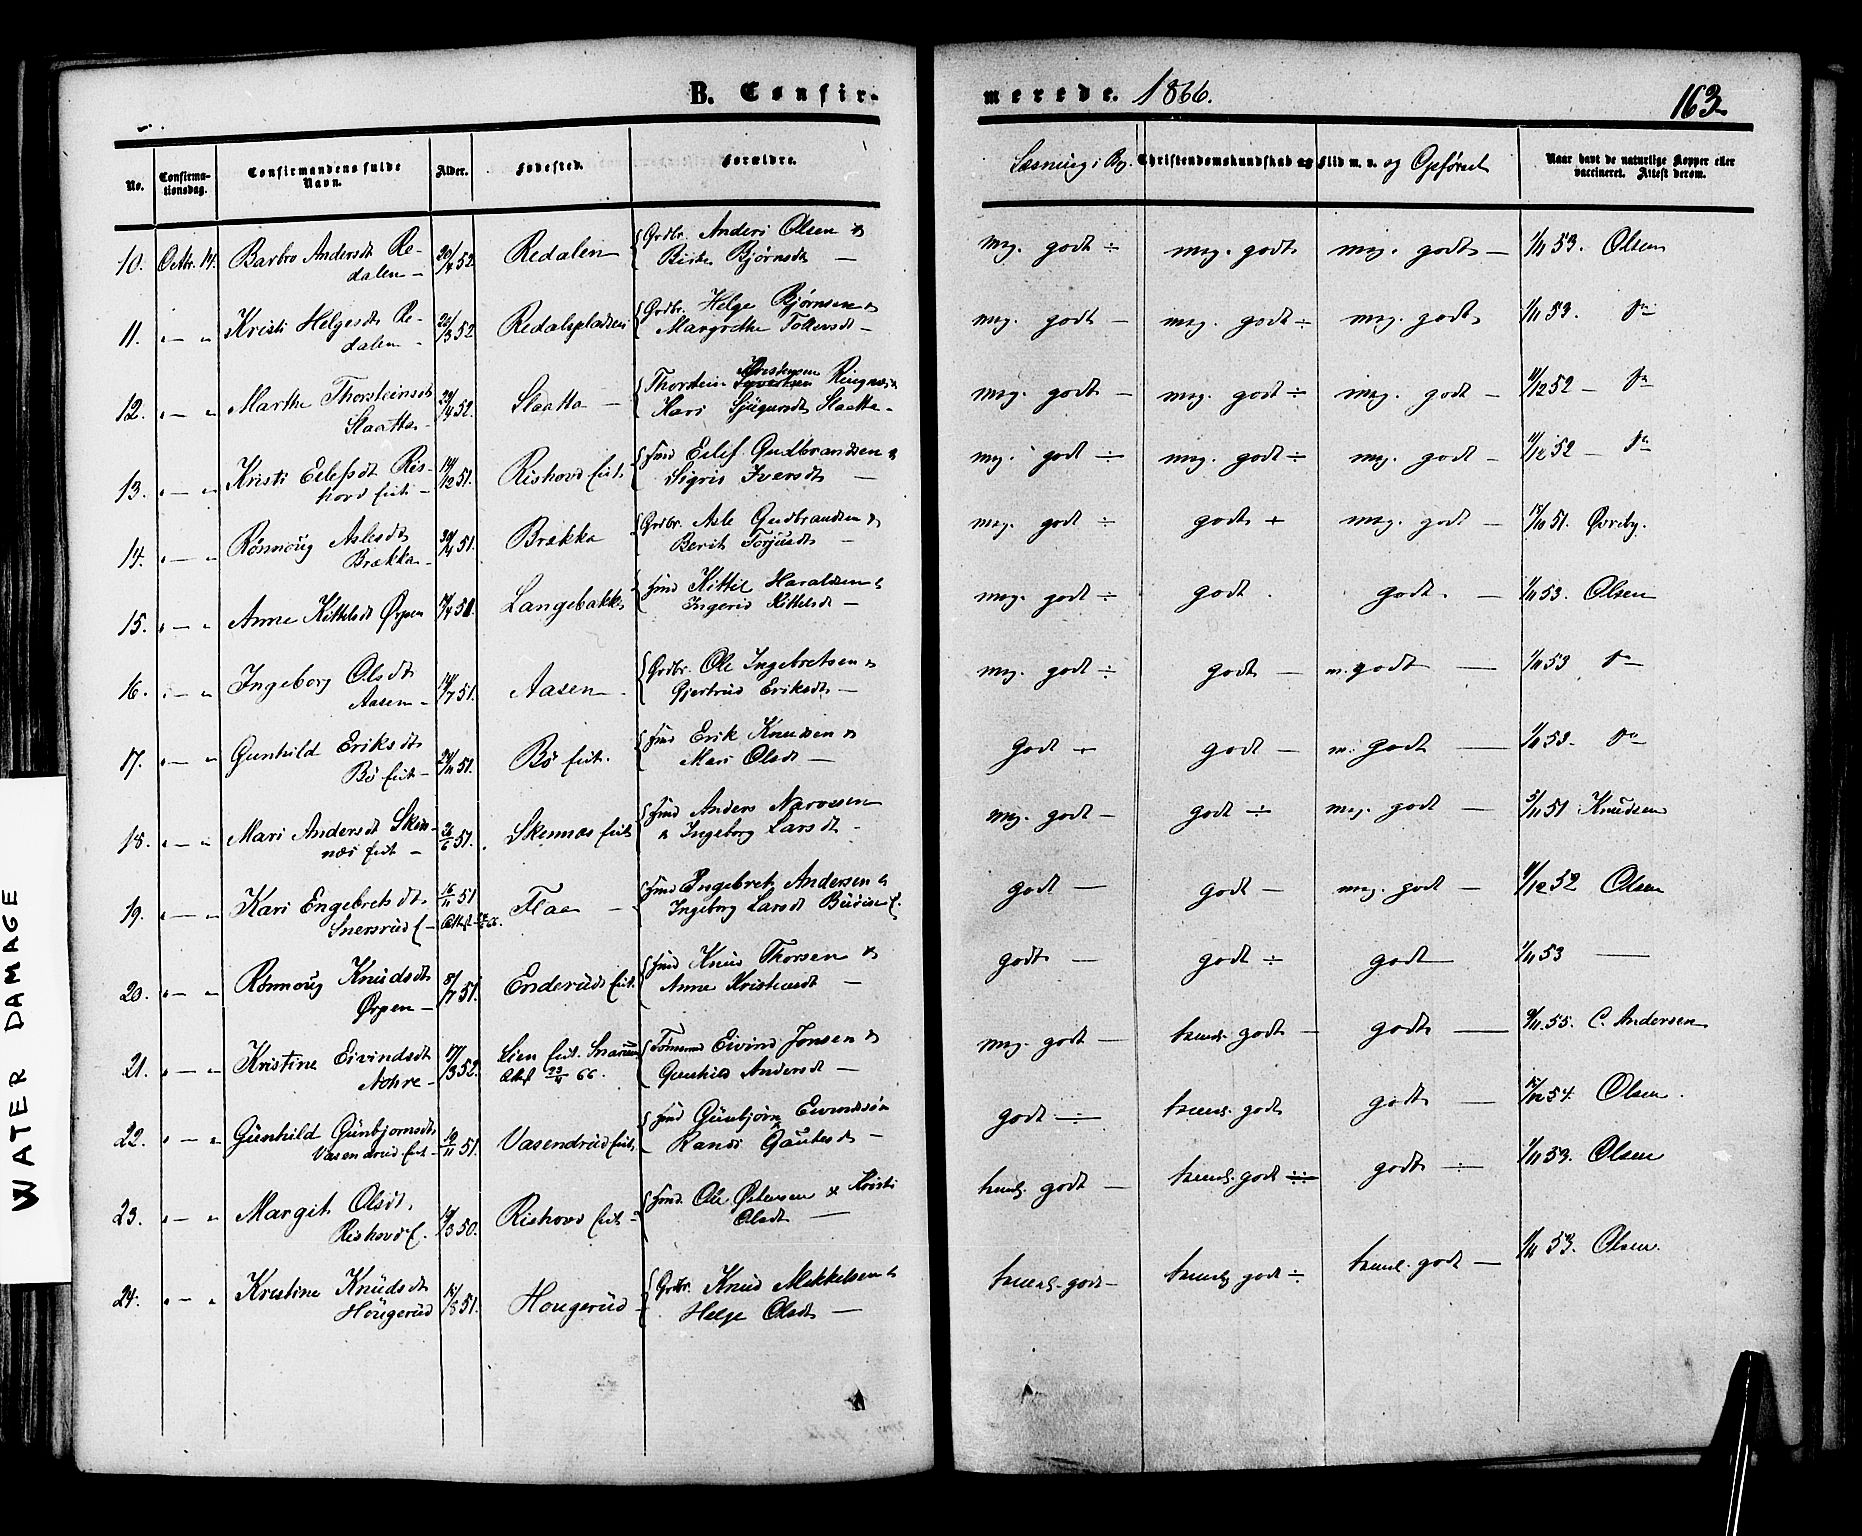 B. Confir-
merede. 1866.
163
No.
Confirma-
tionsdag.
Confirmandens fulde
Navn.
Alder.
Fødested.
Forældre.
Læsning i Bog.
Christendomskundskab og Flid m. v. og Opførsel
Naar havt de naturlige Kopper eller
vaccineret. Attest derom.
10. Octbr. 14. Barbro Andersdt Re-
dalen – 20/4 52 Redalen Grdbr. Anders Olsen &
Birte Bjørnsdt –
meg. godt ÷ meg. godt meg. godt – 1/11 53. Olsen
11. " – " Kristi Helgesdt Re-
dalen – 20/3 52 Redalspladsen Grdbr. Helge Bjørnsen &
Margrethe Tollevsdt –
meg. godt – meg. godt ÷ meg. godt 1/11 53. do
12. " – " Marthe Thorsteinsdt
Slaatta – 24/4 52. Slaatta – Thorstein Kristensen Ringnes &
Kari Sjugurdsdt Slaatta –
meg. godt – meg. godt ÷ meg. godt – 11/12 52 – do
13. " – " Kristi Eilefsdt Ris-
hovd eiet – 14/12 51. Rishovd eiet. Hmd Eilef Gudbrandsen &
Sigrid Iversdt –
meg. godt ÷ meg. godt ÷ meg. godt – 11/12 52 – do
14. " – " Rønnoug Aslesdt
Brækka – 30/4 51. Brækka Grdbr. Asle Gudbrandsen &
Berit Torjusdt –
meg. godt ÷ godt + meg. godt – 17/10 51. Øvreby.
15. " – " Anne Kittelsdt Ørpen Langebakke Hmd Kittel Haraldsen &
Ingerid Kittelsdt –
meg. godt ÷ godt godt. – 1/11 53. Olsen
16. " – " Ingeborg Olsdt
Aasen – 14/7 51. Aasen – Grdbr. Ole Ingebretsen &
Gjertrud Eriksdt –
meg. godt ÷ godt – m. godt – 1/11 53 do
17. " – " Gunhild Eriksdt
Bø eiet – 24/11 51. Bø eiet. Hmd Erik Knudsen &
Mari Olsdt –
godt + godt – m. godt – 1/11 53. do
18. " – " Mari Andersdt Sken-
næs eiet – 26/6 51. Skennæs eiet Hmd Anders Narvesen
& Ingeborg Larsdt –
meg. godt – godt ÷ meg. godt – 5/11 51 Knudsen
19. " – " Kari Engebretsdt
Snersrud e. – 16/11 51 Flaa – Hmd Engebret Andersen &
Ingeborg Larsdt
godt – godt – meg. godt – 11/12 52 Olsen
20. " – " Rønnoug Knudsdt
Ørpen – 8/7 51. Enderud eiet. Hmd Knud Thorsen &
Anne Kristensdt –
godt – godt ÷ godt 1/11 53 –
21. " – " Kristine Eivindsdt
Nohre – 17/3 52. Lien eiet. Snarum
Attest 22/4 66. Tømmermd Eivind Jonsen &
Gunhild Andersdt –
meg. godt – temel. godt – godt – 9/11 55. C. Andersen
22. " – " Gunhild Gunbjornsdt
Vasendrud eiet – 19/11 51. Vasendrud eiet. Hmd Gunbjørn Eivindsøn
& Randi Gautesdt –
godt ÷ temel. godt godt – 15/12 54. Olsen.
23. " – " Margit Olsdt.
Rishovd e. 19/3 50. Rishovd eiet – Hmd. Ole Østensen & Kristi
Olsdt –
temel. godt – temel. godt godt ÷ 1/11 53. Olsen
24. " – " Kristine Knudsdt
Hougerud 15/8 51. Hougerud – Grdbr. Knud Mikkelsen &
Helge Olsdt –
temel. godt – temel. godt ÷ temel. godt – 1/11 53. Olsen.
WATER DAMAGE